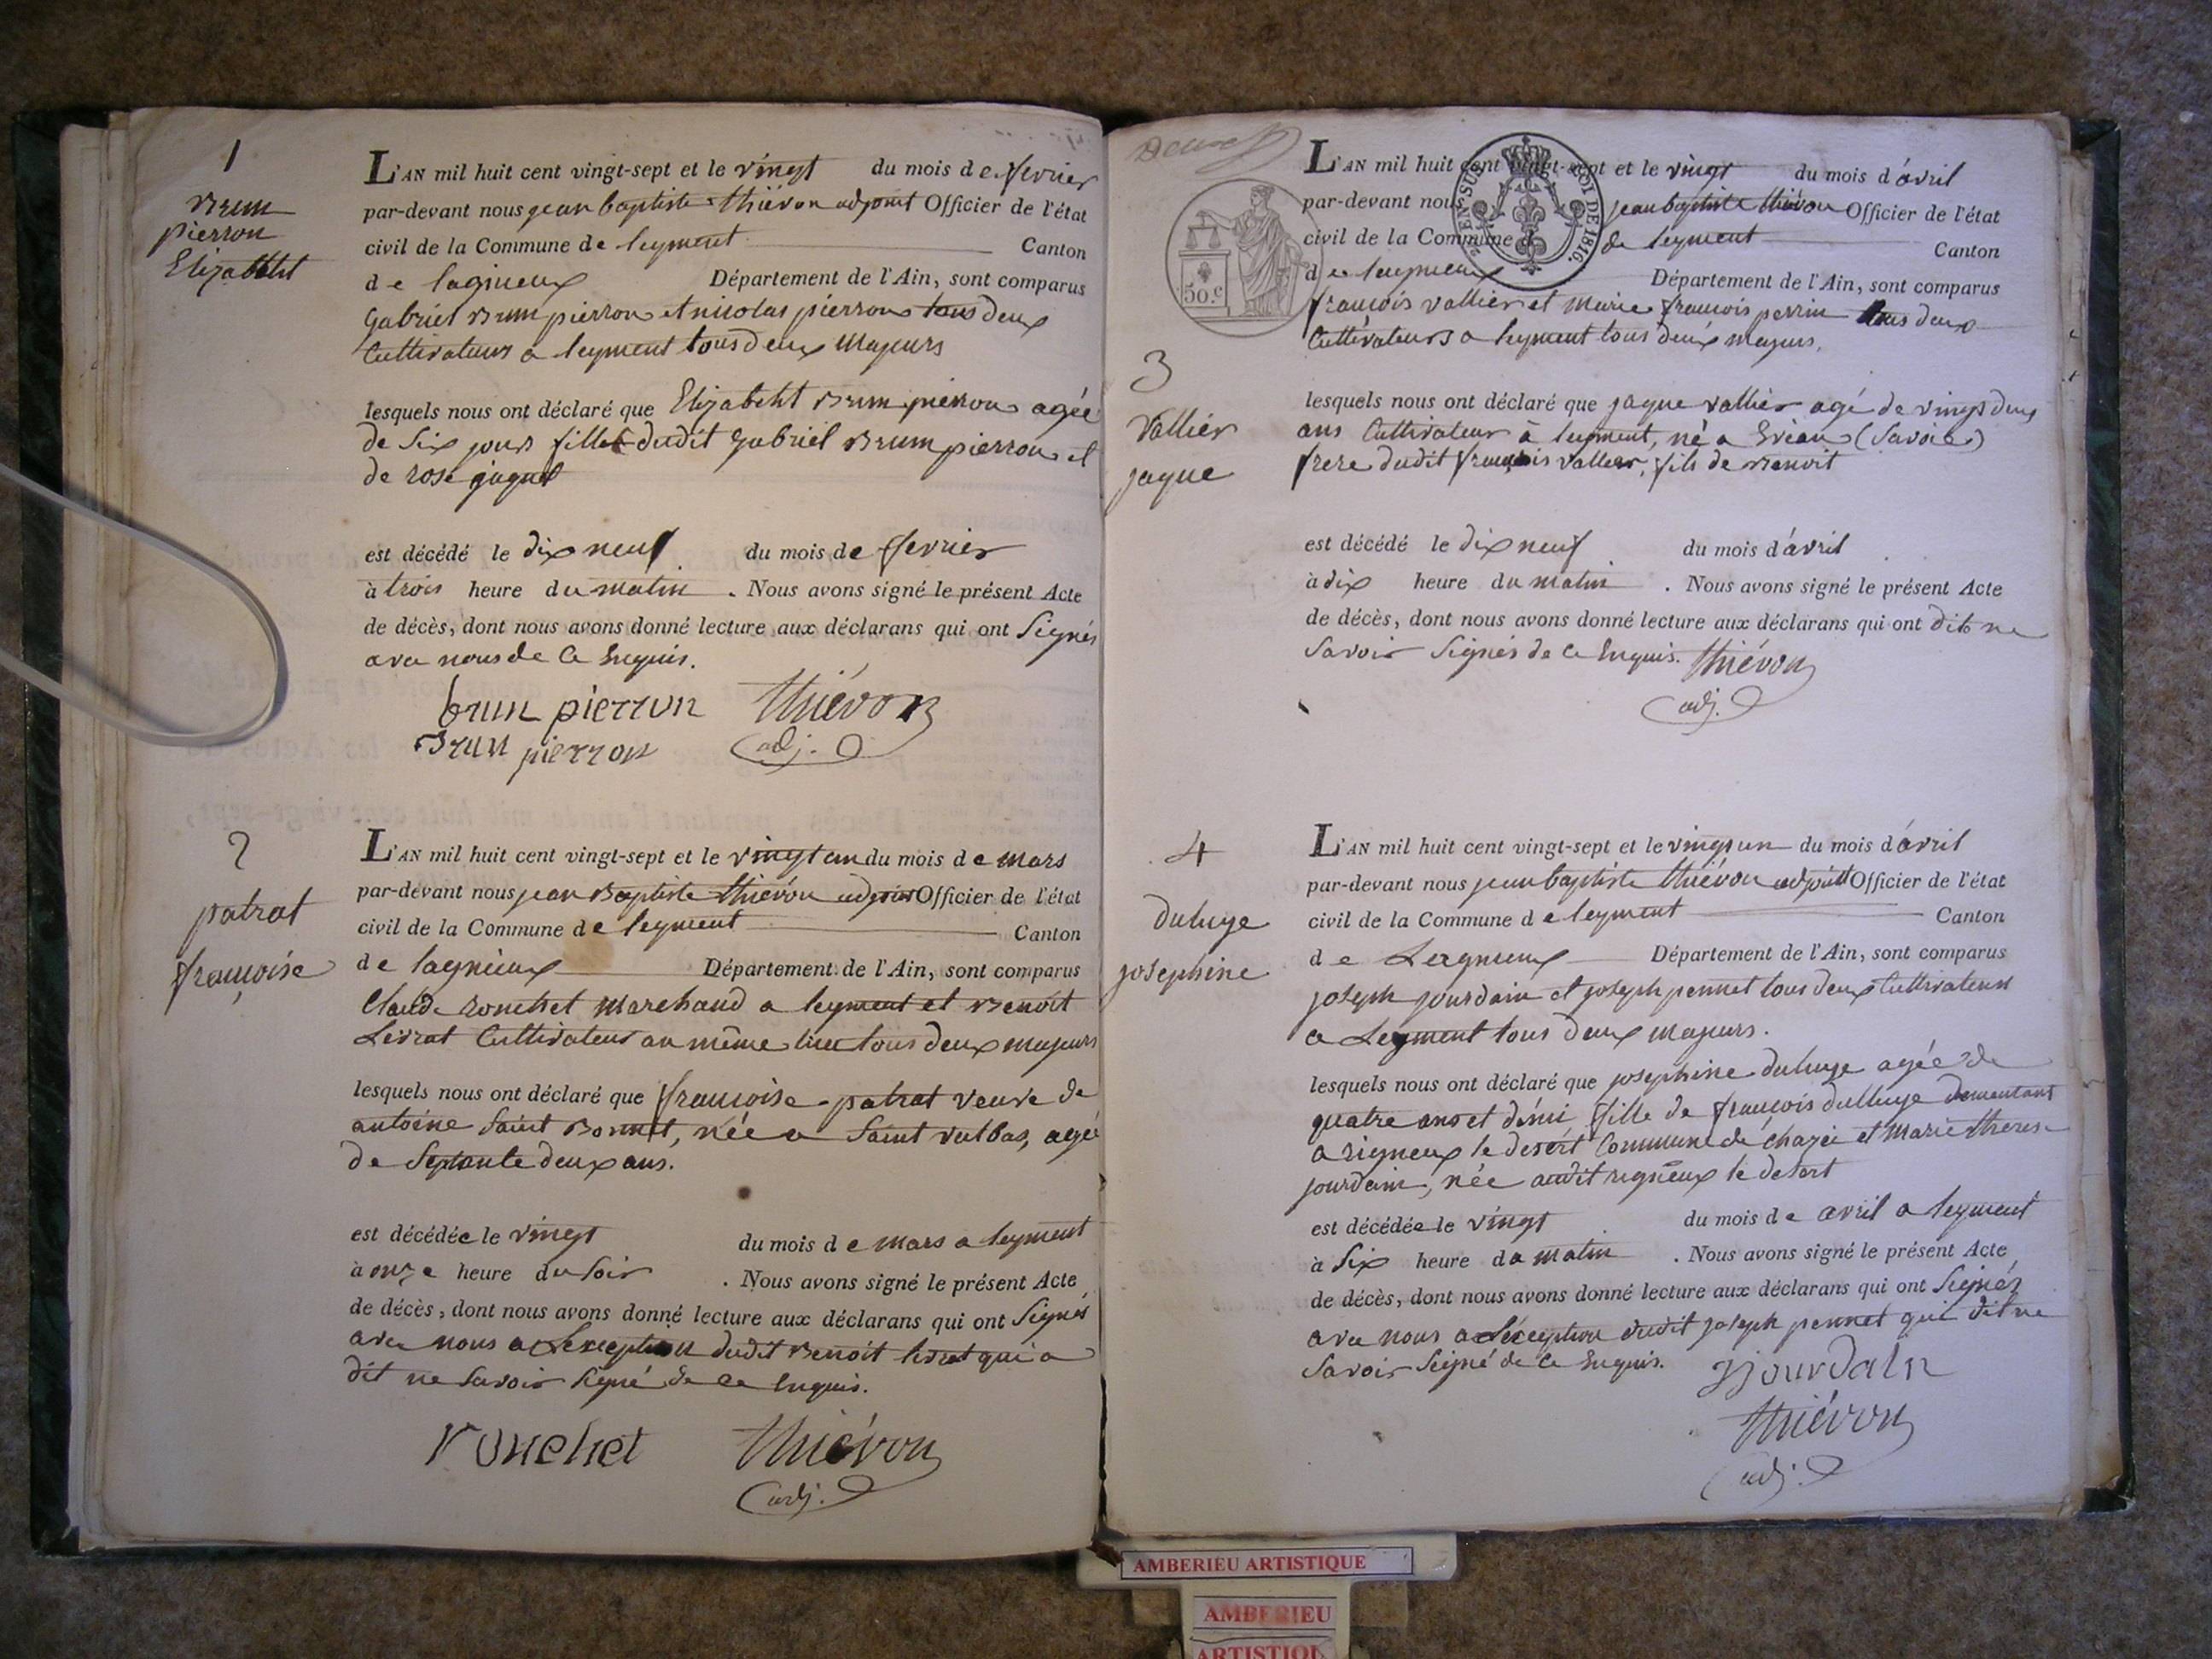 1
Brum
pierron
Elizabeht
L'AN mil huit cent vingt-sept et le vingt du mois de fevrier
par-devant nous jean baptiste thiévon adjoint Officier de l'état
civil de la Commune de leyment Canton
de lagnieux Département de l'Ain, sont comparus
Gabriel Brum pierron et nicolas pierron tous deux
Cultivateurs a leyment tous deux Majeurs
lesquels nous ont déclaré que Elizabeht Brum pierron agée
de Six jours fille dudit Gabriel Brum pierron et
de rose
est décédé le dix neuf du mois de fevrier
à trois heure du matin . Nous avons signé le présent Acte
de décès, dont nous avons donné lecture aux déclarans qui ont Signés
avec nous de Ce Enquis.
brun pierron thiévon
Brun pierron adj.
2
patrat
françoise
L'AN mil huit cent vingt-sept et le vingt un du mois de mars
par-devant nous jean Baptiste thiévon adjoint Officier de l'état
civil de la Commune de leyment Canton
de lagnieux Département de l'Ain, sont comparus
Claude ronchet Marchand a leyment et Benoit
Livrat Cultivateur au même lieu tous deux majeurs
lesquels nous ont déclaré que françoise patrat veuve de
antoine Saint Bonnet, née a Saint vulbas, agée
de Septante deux ans.
est décédée le vingt du mois de mars a leyment
à onze heure du Soir . Nous avons signé le présent Acte
de décès, dont nous avons donné lecture aux déclarans qui ont Signés
avec nous a Lexception dudit Benoit livrat qui a
dit ne Savoir Signé de Ce Enquis.
ronchet thiévon
adj.
EN SUS ROI DE 1816.
50.c
3
Vallier
jaque
L'AN mil huit cent vingt-sept et le vingt du mois d'avril
par-devant nous jean baptiste thiévon Officier de l'état
civil de la Commune de leyment Canton
de lagnieux Département de l'Ain, sont comparus
françois vallier et Marie françois perrin tous deux
Cultivateurs a leyment tous deux majeurs,
lesquels nous ont déclaré que jaque vallier agé de vingt deux
ans Cultivateur à leyment, né a Evian (Savoie)
frere dudit françois vallier, fils de Benoit
est décédé le dix neuf du mois d'avril
à dix heure du matin . Nous avons signé le présent Acte
de décès, dont nous avons donné lecture aux déclarans qui ont dit ne
Savoir Signés de Ce Enquis. thiévon
adj.
4
duluye
josephine
L'AN mil huit cent vingt-sept et le vingt un du mois d'avril
par-devant nous jean baptiste thiévon adjoint Officier de l'état
civil de la Commune de leyment Canton
de Lagnieux Département de l'Ain, sont comparus
joseph jourdain et joseph pennet tous deux Cultivateurs
a Leyment tous deux majeurs.
lesquels nous ont déclaré que josephine duluye agée de
quatre ans et démi fille de françois dulluye demeutant
a rigneux le desert Commune de chazée et Marie therese
jourdain, née audit rigneux le desert
est décédée le vingt du mois de avril a leyment
à Six heure du matin . Nous avons signé le présent Acte
de décès, dont nous avons donné lecture aux déclarans qui ont Signés
avec nous a Léxception dudit joseph pennet qui dit ne
Savoir Signé de Ce Enquis. Jjourdain
thiévon
adj.
AMBERIEU ARTISTIQUE
AMBERIEU
ARTISTIQU